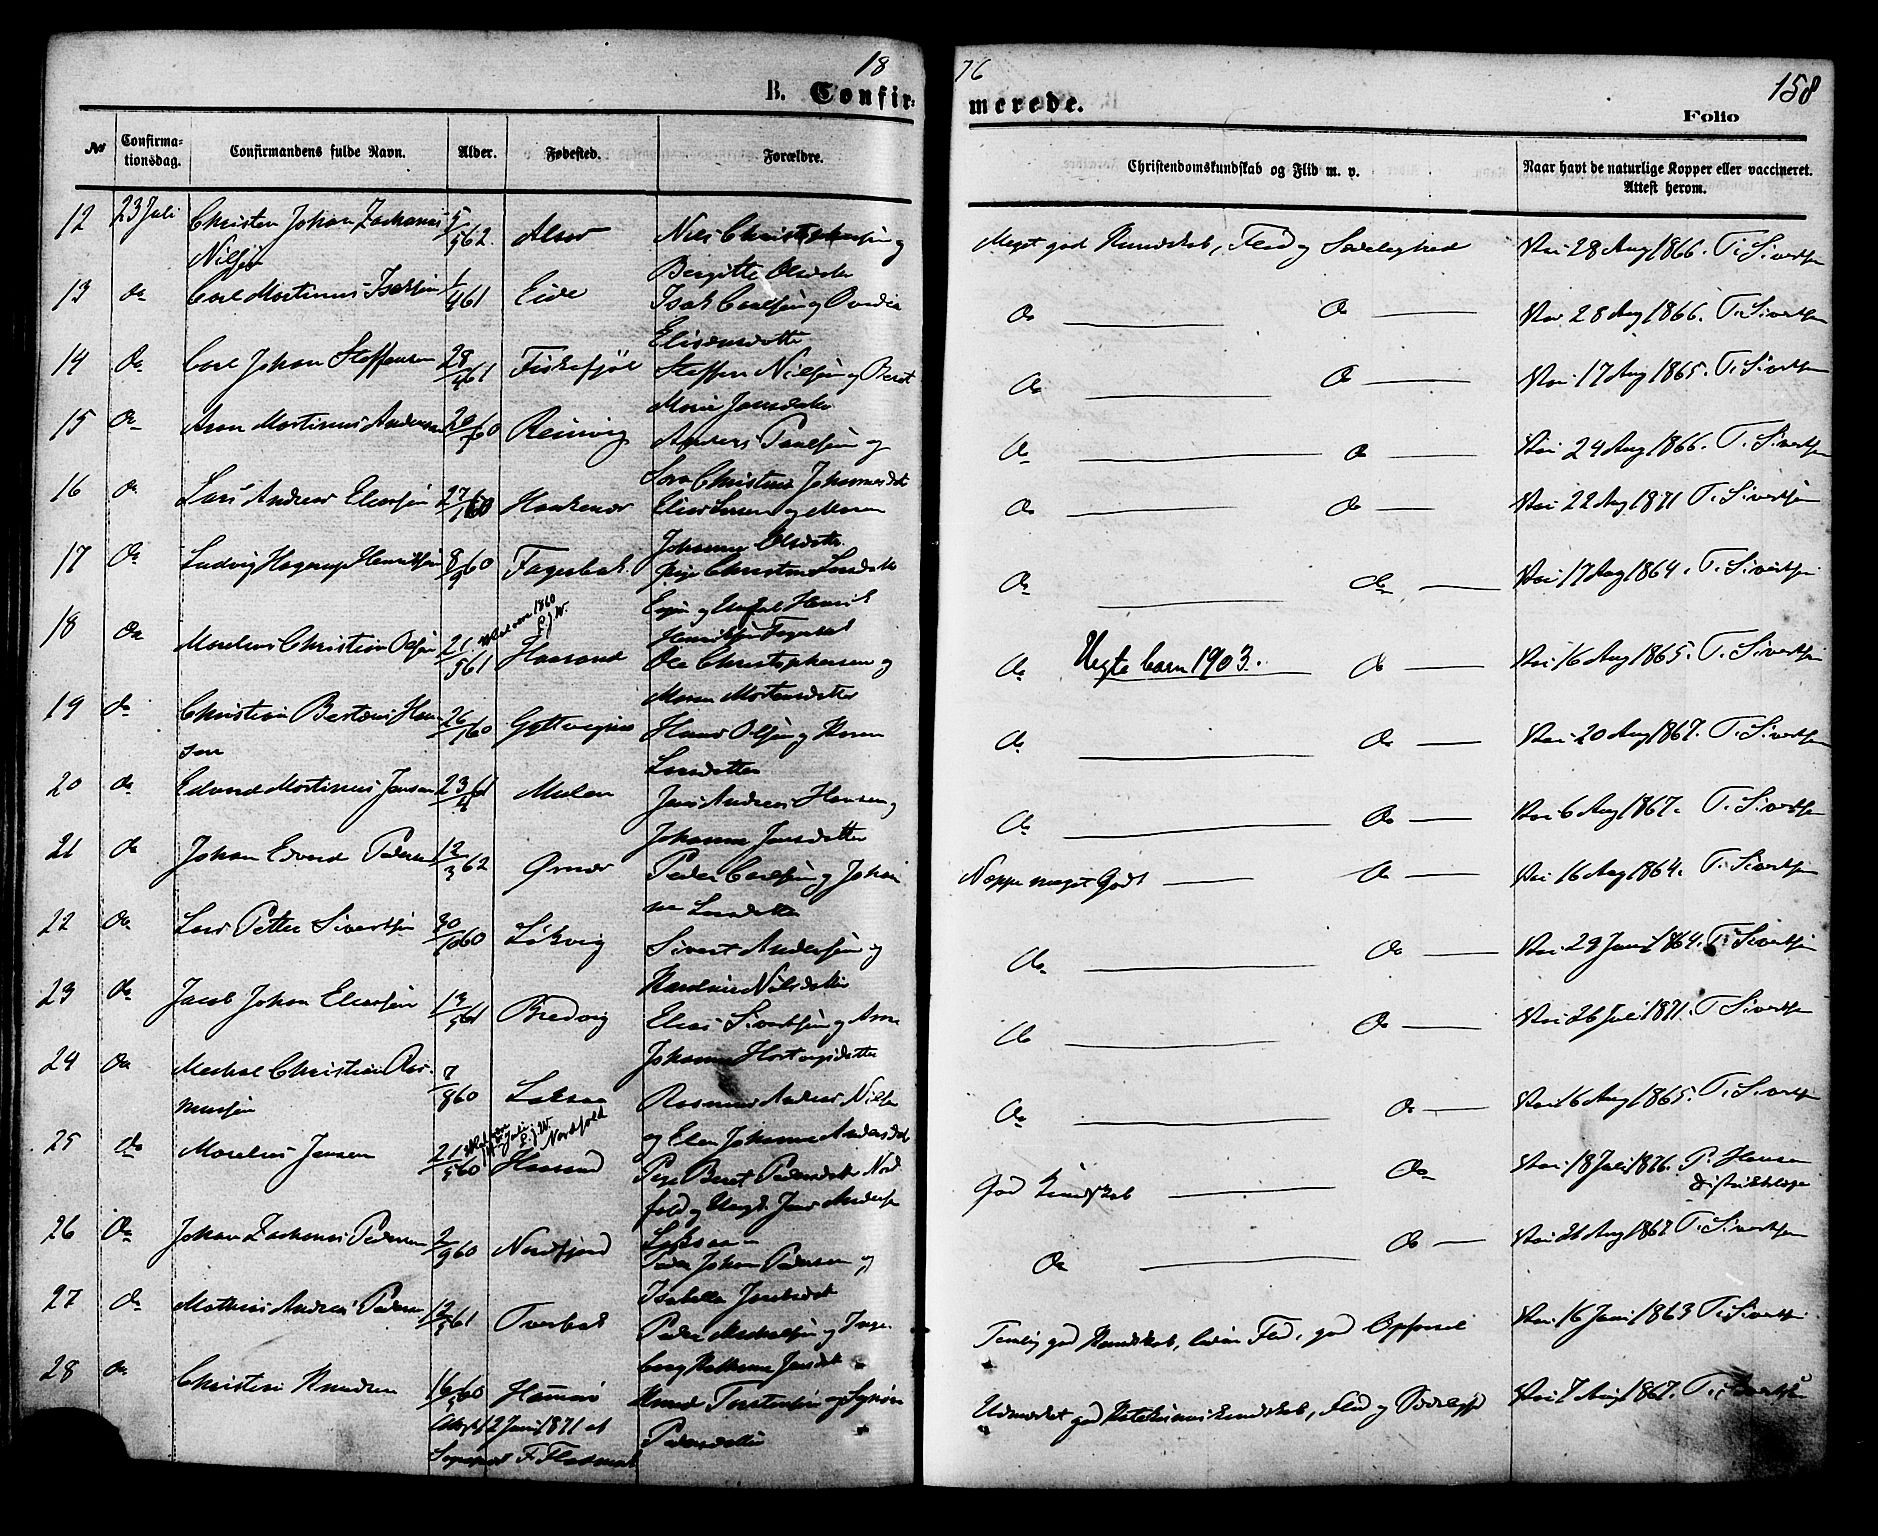 18
76
158
B. Confir-
merede.
Folio
No
Confirma-
tionsdag.
Confirmandens fulde Navn.
Alder.
Fødested.
Forældre.
Christendomskundskab og Flid m. v.
Naar havt de naturlige Kopper eller vaccineret.
Attest herom.
12 23 Juli Christen Johan Zacharias 5/5 62. Nils Christophersen og Meget god Kundskab, Flid og Sædelighed Vac. 28 Aug 1866. T. Sivertsen
Nilsen
Bergitte Olsdtr
13 do Carl Martinus Isaksen 1/4 61 Eide Isak Carlsen og do do Vac. 28 Aug 1866. T. Sivertsen
14 do Carl Johan Steffensen 28/4 61 Fiskefjøl Steffen Nilsen og Berit do do Vac. 17 Aug 1865. T. Sivertsen
15 do Aron Martinus Andersen 20/7 60 Reinvig Anders Paulsen og do do Vac. 24 Aug 1866. T. Sivertsen
16 do Lars Andreas Eliassen Haakenes Elias Larsen og Maren do do Vac. 22 Aug 1871 T. Sivertsen
Johanna Olsdatter.
17 do Ludvig Hagerup Henriksen 8/9 60 Fagerbak. Pige Christine Larsdtr do do Vac. 17 Aug 1864. T. Sivertsen
Henrik
Henriksen Fagerbak
18 do Morelius Christian Olsen 21/5 61 1860 Haasand Ole Christophersen og do Uægte barn 1903. do Vac. 16 Aug 1865. T. Sivertsen
Maren Mortensdatter
19 do Christian Berteus Han- 26/1 60 Hans Olsen og Karen do do Vac. 20 Aug 1867. T. Sivertsen
sen
Larsdatter
20 do Edvard Martinus Jensen 23/4 61 Mulen Jens Andreas Hansen og do do Vac. 6 Aug 1867. T. Sivertsen
Johanna Jensdatter
21 do Johan Edvard Pedersen 12/3 62 Ørnes Peder Carlsen og Johan- Neppe meget Godt do Vac. 16 Aug 1864. T. Sivertsen
ne Larsdatter
22 do Lars Petter Sivertsen 30/10 60 Løkvig Sivert Andersen og do do Vac. 29 Juni 1864. T. Sivertsen
Nilsdatter
23 do Jacob Johan Eliassen 13/5 61 Bredvig Elias Sivertsen og Anne do do Vac. 26 Juli 1871. T. Sivertsen
Johanna Hartvigsdatter
24 do Meckal Christian Ras- 7/8 60 Laksaa Rasmus Andreas Nilsen do do Vac. 16 Aug 1865. T. Sivertsen
musen
Nordfold
og Elen Johanna Andersdtr
25 do Morelius Jensen 21/5 60 Haasand Pige Beret Pedersdtr Nord- God Kundskab do Vac. 18 Juli 1876. P. Hansen
Distriktslæge
fold og Ungk. Jens Andersen
Laksaa
26 do Johan Zacharias Pedersen 2/9 60 Nordfjord Peder Johan Pedersen og do do Vac. 26 Aug 1867 T. Sivertsen
Isabella Jakobsdtr
27 do Mathias Andreas Pedersen 12/3 61 Tverbak Peder Meckalsen og Inge- Temlig god Kundskab, liden Flid, god Opførsel Vac. 16 Juni 1863 T. Sivertsen
borg Jensdtr
28 do Christian Knudsen 16/5 60 Hamarø Knud Torstensen og Synøve Udmærket god Katekismuskundskab, Flid og Vac. 7 Aug 1867. T. Sivertsen
12 Juni 1871 af
Pedersdatter